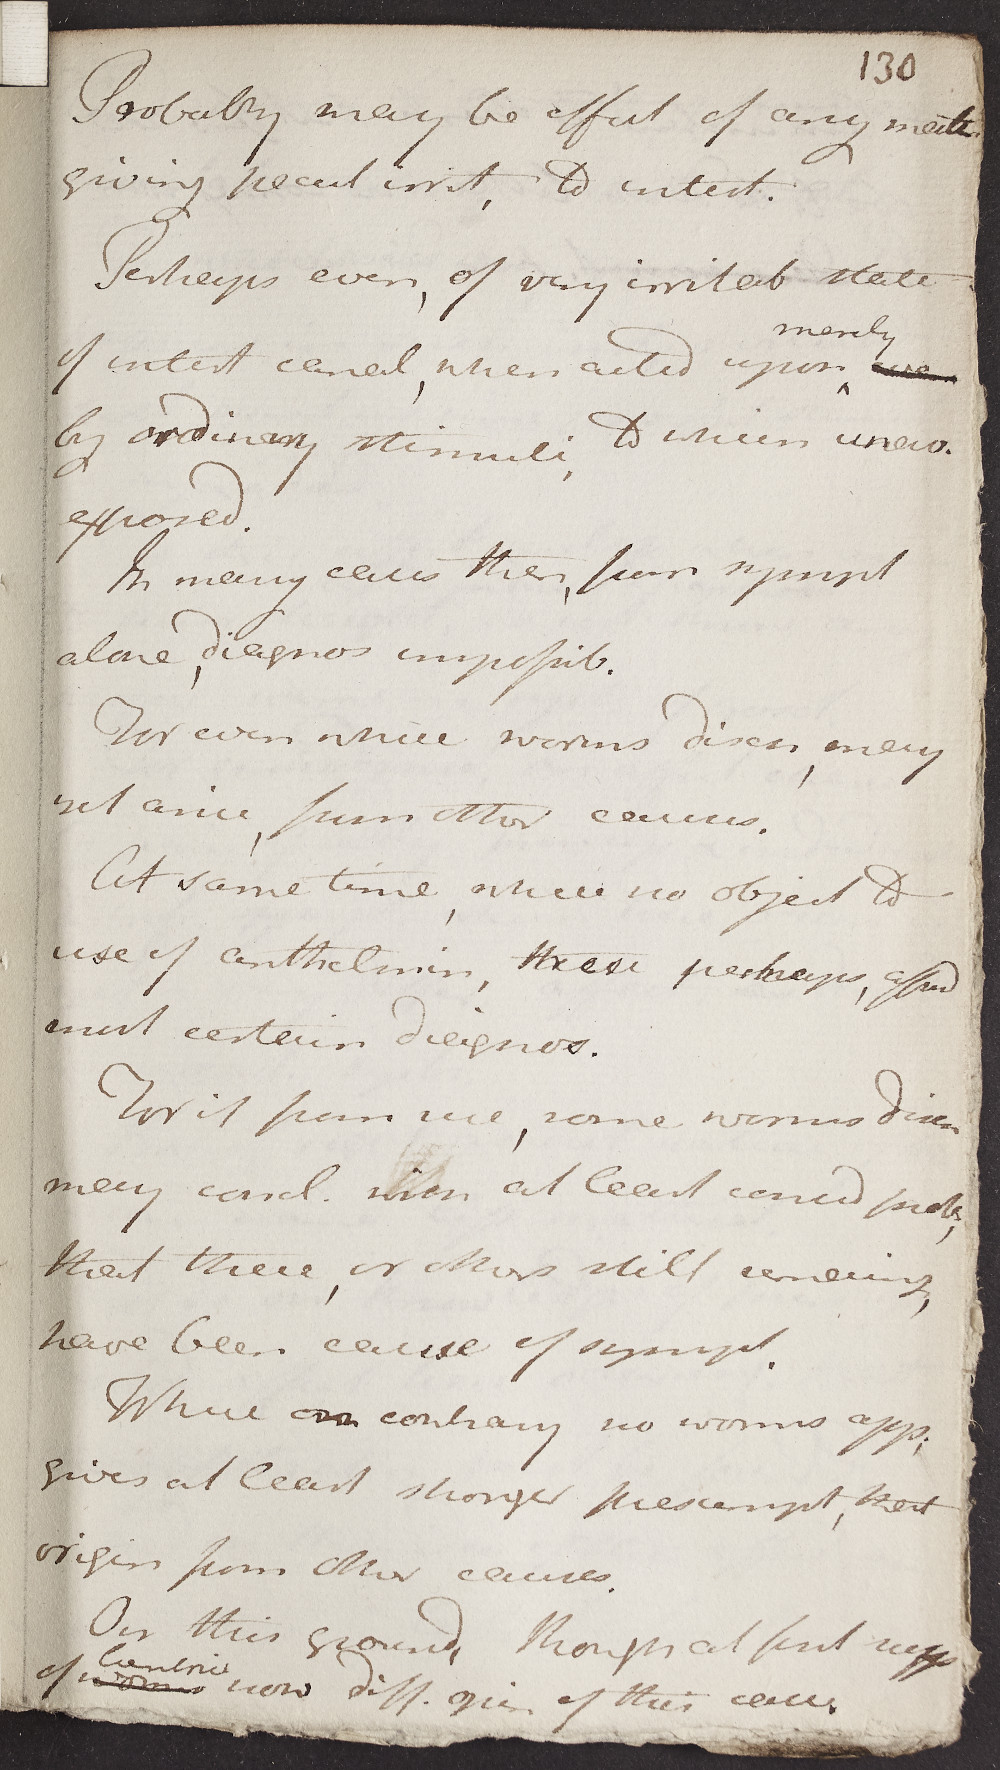 130
Probably may be effect of any matt.
giving pecul irrit, to intest.
Perhaps even, of very irritab state
of intest canal, when acted upon, merely
by ordinary stimuli, to which unav.
exposed.
In many cases then, from sympt
alone, diagnos impossib.
For even where worms disch, may
yet arise, from other causes.
At same time, where no object to
use of anthelmin, these perhaps, afford
most certain diagnos.
For if from use, some worms disch
may concl. with at least consid prob,
that these, or others still remaining,
have been cause of sympt.
Where on contrary no worms app;
gives at least stronger presumpt, that
origin from other causes.
On this ground, though at first susp
of worms Ventric now diff. opin of this case.